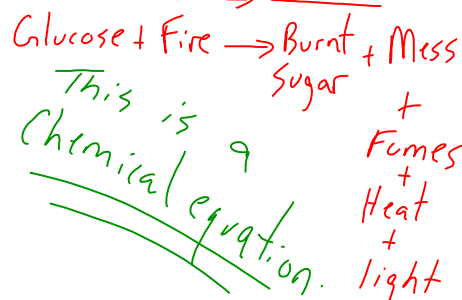 Glucose + Fire → Burnt + Mess
Sugar
+
Fumes
+
Heat
+
light
This is a
Chemical equation.